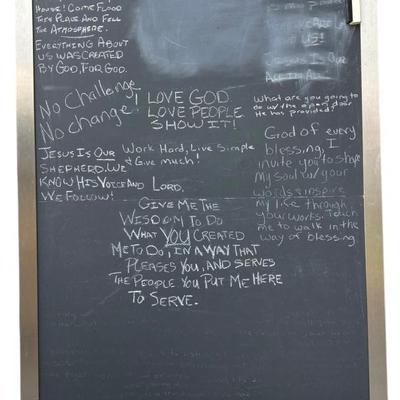 House! Come Flood
This Place And Fill
The Atmosphere.
Everything About
us was created
By God, For God.
No Challenge,
No change!
I Love God.
Love People
Show It!
We Are
Us!
Jesus Is Our
All In All
What are you going to
do w/ the open door
He has provided?
Jesus Is Our
Shepherd. We
Know His Voice And
We Follow!
Work Hard, Live Simple
& Give much!
Lord,
Give Me The
Wisdom To Do
What You Created
Me To Do, In A Way That
Pleases You, And Serves
The People You Put Me Here
To Serve.
God of every
blessing, I
invite you to shape
My soul w/ your
words & inspire
my life through
your works. Teach
me to walk in the
way of blessing